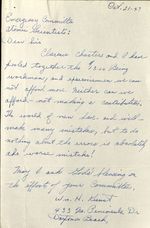 Oct. 21-47
Emergency Committee
Atomic Scientists:
Dear Sir:
Clarence Charters and I have
pooled together the $2.00. Being
workmen, and
not afford more. Neither can we
afford not making a contribution.
The world of men has and will
make many mistakes, but to do
nothing about the error is absolutely
the worse mistake!
May I ask God's blessing on
the efforts of your Committee,
Wm. H.
433 Peninsula Dr
Daytona Beach,